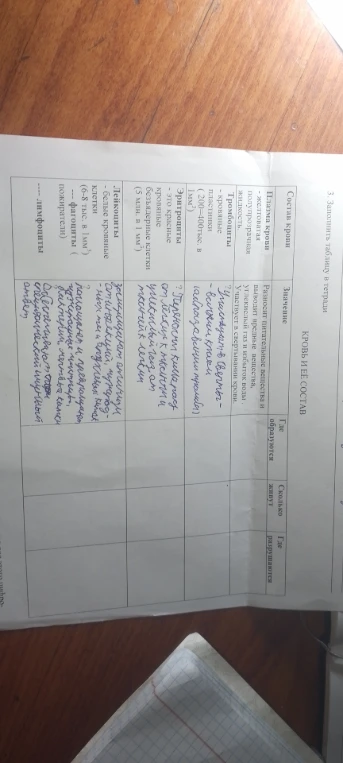 3. Заполнить таблицу в тетради
КРОВЬ И ЕЁ СОСТАВ
Состав крови
Значение
Где образуются
Сколько живут
Где разрушаются
Плазма крови
- желтоватая
полупрозрачная
жидкость
Разносит питательные вещества и
выводит вредные вещества,
углекислый газ и избыток воды.
Участвует в свертывании крови.
Тромбоциты
- кровяные
пластинки
( 200-400тыс. в
1мм³)
?
Участвуют в сверты-
вании крови
Эритроциты
- это красные
кровяные
безъядерные клетки
(5 млн. в 1 мм³)
?
Переносят кислород
от легких к тканям и
углекислый газ от
тканей к легким
Лейкоциты
- белые кровяные
клетки
(6-8 тыс. в 1мм³)
--- фагоциты (
пожиратели)
защищают организм
?
---- лимфоциты
Обеспечивают
специфический иммунный
ответ